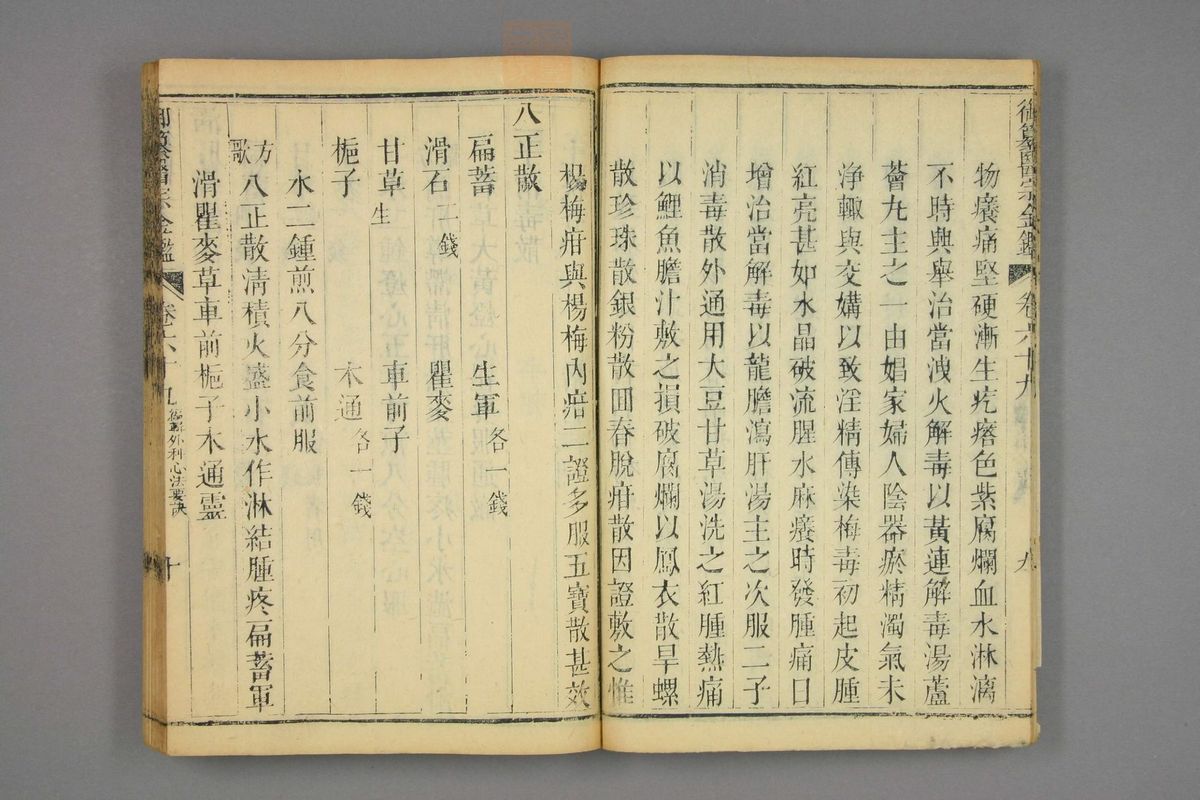 御纂醫宗金鑑 卷六十九 九
物癢痛堅硬漸生疙瘩色紫腐爛血水淋漓
不時興舉治當洩火解毒以黃連解毒湯蘆
薈丸主之一由娼家婦人陰器瘀精濁氣未
淨輙與交媾以致淫精傳染梅毒初起皮腫
紅亮甚如水晶破流腥水麻癢時發腫痛日
增治當解毒以龍膽瀉肝湯主之次服二子
消毒散外通用大豆甘草湯洗之紅腫熱痛
以鯉魚膽汁敷之損破腐爛以鳳衣散旱螺
散珍珠散銀粉散回春脫疳散因證敷之惟
楊梅疳與楊梅內疳二證多服五寶散甚效
八正散
萹蓄 生軍各一錢
滑石二錢 瞿麥
甘草生 車前子
梔子 木通各一錢
水二鍾煎八分食前服
方歌 八正散清積火盛小水作淋結腫疼萹蓄軍
滑瞿麥草車前梔子木通靈
御纂醫宗金鑑 卷六十九 編輯外科心法要訣 十